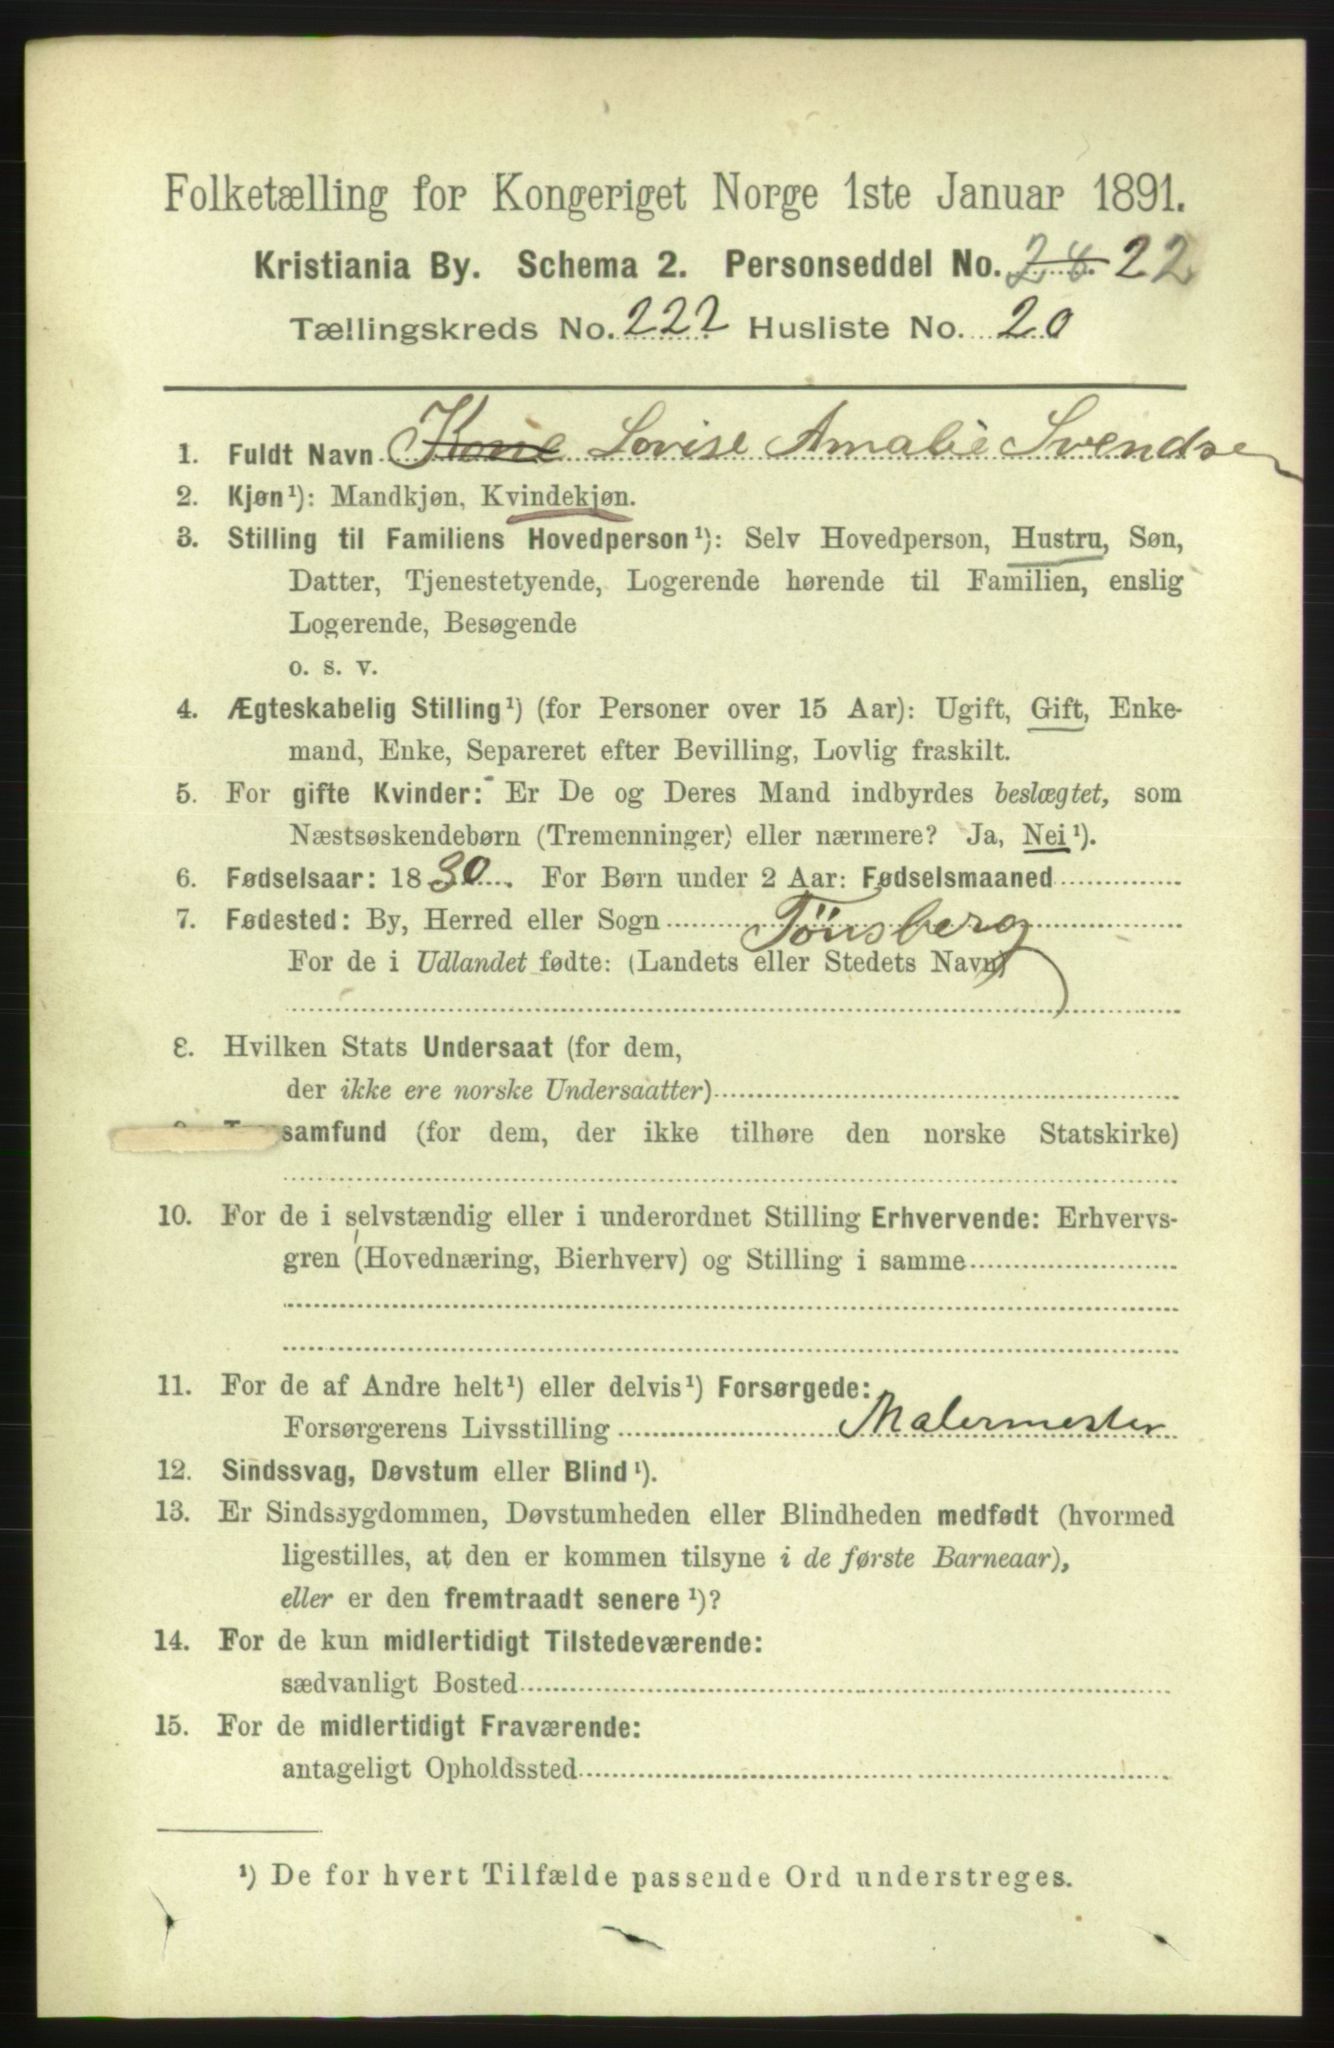 Folketælling for Kongeriget Norge 1ste Januar 1891.
Kristiania By. Schema 2. Personseddel No. 28 22
Tællingskreds No. 222 Husliste No. 20
1. Fuldt Navn Kone Lovise Amalie Svendsen
2. Kjøn¹): Mandkjøn, Kvindekjøn.
3. Stilling til Familiens Hovedperson¹): Selv Hovedperson, Hustru, Søn,
Datter, Tjenestetyende, Logerende hørende til Familien, enslig
Logerende, Besøgende
o. s. v.
4. Ægteskabelig Stilling¹) (for Personer over 15 Aar): Ugift, Gift, Enke-
mand, Enke, Separeret efter Bevilling, Lovlig fraskilt.
5. For gifte Kvinder: Er De og Deres Mand indbyrdes beslægtet, som
Næstsøskendebørn (Tremenninger) eller nærmere? Ja, Nei¹).
6. Fødselsaar: 1830. For Børn under 2 Aar: Fødselsmaaned
7. Fødested: By, Herred eller Sogn Tönsberg
For de i Udlandet fødte: (Landets eller Stedets Navn)
8. Hvilken Stats Undersaat (for dem,
der ikke ere norske Undersaatter)
samfund (for dem, der ikke tilhøre den norske Statskirke)
10. For de i selvstændig eller i underordnet Stilling Erhvervende: Erhvervs-
gren (Hovednæring, Bierhverv) og Stilling i samme
11. For de af Andre helt¹) eller delvis¹) Forsørgede:
Forsørgerens Livsstilling Malermester
12. Sindssvag, Døvstum eller Blind¹).
13. Er Sindssygdommen, Døvstumheden eller Blindheden medfødt (hvormed
ligestilles, at den er kommen tilsyne i de første Barneaar),
eller er den fremtraadt senere¹)?
14. For de kun midlertidigt Tilstedeværende:
sædvanligt Bosted
15. For de midlertidigt Fraværende:
antageligt Opholdssted
¹) De for hvert Tilfælde passende Ord understreges.